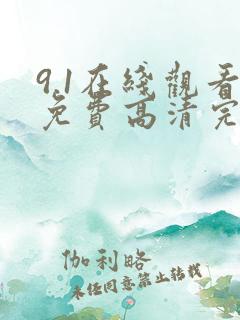 9.1在线觀看
免費高清完
伽利略
未经同意禁止转载